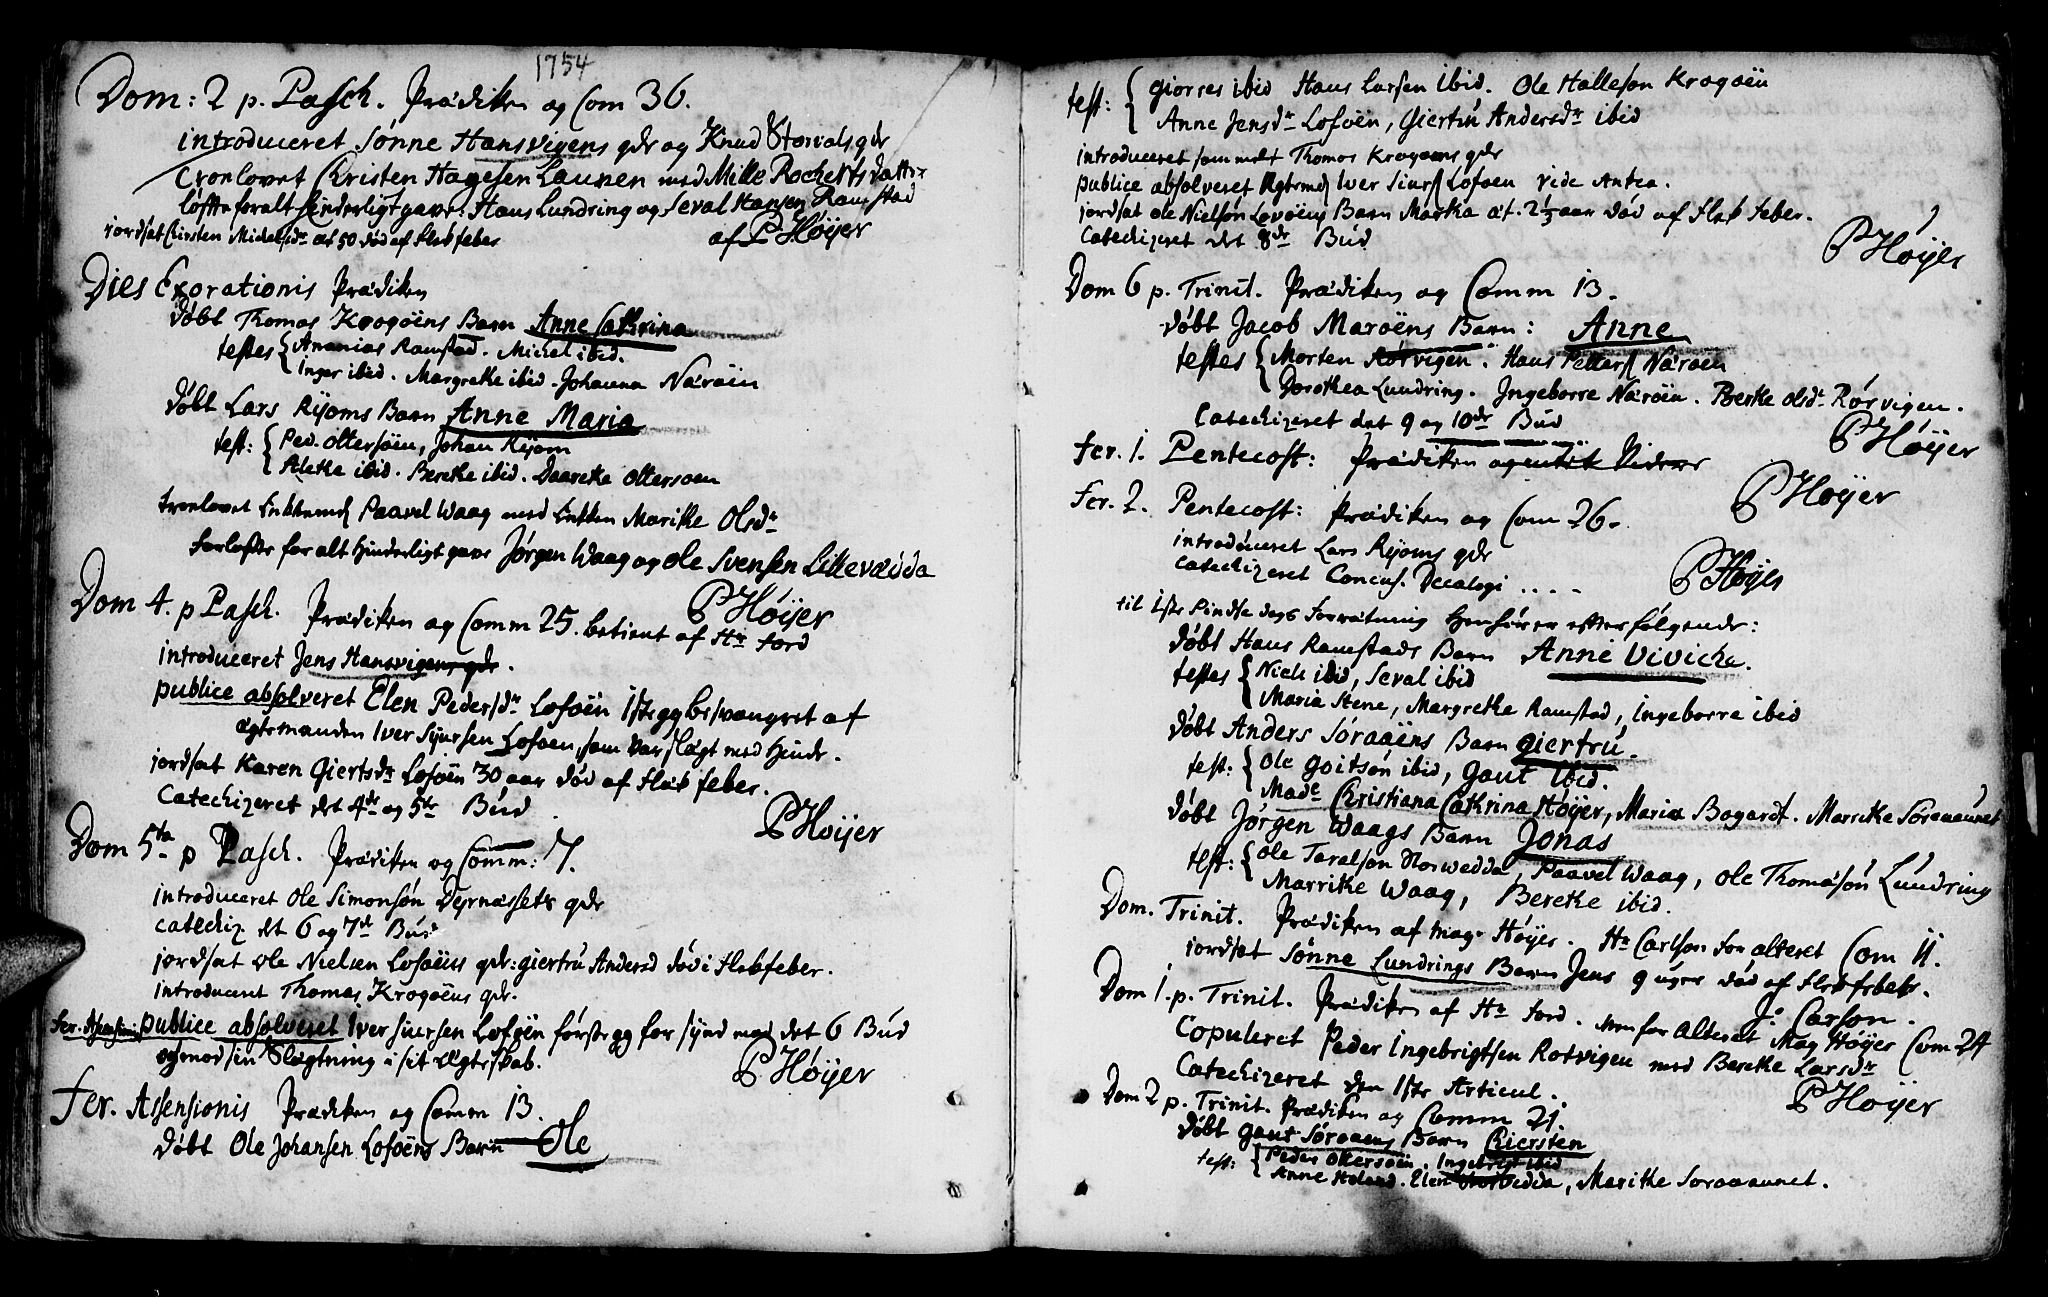 1754
Dom: 2 p. Pasch. Prædiken og Com 36.
introduceret Sønne Hansvigens qdr og Knud Storvals qdr
Tronlovet Christen Hagesen Launen med Mille Rocherts datter
løfte for alt hinderligt gave: Hans Lundring og Seval Hansen Ramstad
jordsat Kirsten Michelsdr æt 50 død af Flekfeber
af P Høyer
Dies Exorationis Prædiken
døbt Thomas Krogøens Barn Anne Cathrina
testes { Ananias Ramstad. Michel ibid.
Inger ibid. Margrethe ibid. Johanna Nærøen
døbt Lars Ryoms Barn Anne Maria
test: { Ped. Ottersøen, Johan Ryom
Alethe ibid. Berethe ibid. Daarethe Ottersoen
tronlovet Enkemd Paavel Waag med Enken Marithe Olsdr
forløfte for alt hinderligt gave Jørgen Waag og Ole Svensen Lillevædda
P Høyer
Dom 4. p Pasch. Prædiken og Comm 25. betient af Hr Ford
introduceret Jens Hansvigens qdr.
publice absolveret Elen Pedersdr Loføen 1ste g besvangret af
ægtemanden Iver Syursen Lofoen, som var slægt med hende.
jordsat Karen Giertsdr Lofoen 30 aar død af Flek feber.
Catechizeret det 4de og 5te Bud
P Høyer
Dom 5ta p Pasch. Prædiken og Comm: 7.
introduceret Ole Simonsøn Dejrnæssets qdr
catechiz det 6 og 7de Bud
jordsat Ole Nielsen Lofoens qdr: giertru Andersd død i Flekfeber.
introduceret Thomas Krogøens qdr.
Fer. Asensionis publice absolveret Iver siursen Lofoen første gg for synd mod det 6 Bud
og mod sin Slægtning i sit Ægteskab.
P Høyer
Fer. Assensionis Prædiken og Comm 13.
døbt Ole Johansen Lofoens Barn Ole
test: { giorres ibid Hans Larsen ibid. Ole Halleson Krogøen
Anne Jensdr Lofoen, Giertru Andersdr ibid
introduceret sammest Thomas Krogoens qdr
publice absolveret Ægtemd Iver Siurs Lofoen vide Antea.
jordsat Ole Nielsøn Lovøens Barn Martha æt. 2 1/3 aar død af Flek feber.
Catechizeret det 8de Bud
P Høyer
Dom 6 p. Trinit. Prædiken og Comm 13.
døbt Jacob Marøens Barn: Anne
testes { Morten Rørvigen. Hans Peders Nærøen
Dorothea Lundring. Ingeborre Nærøen. Berthe Olsdr Rørvigen.
Catechizeret det 9 og 10de Bud
P Høyer
Fer. 1. Pentecost: Prædiken og
P Høyer
Fer. 2. Pentecost: Prædiken og Com 26.
introduceret Lars Ryoms qdr
catechizeret Conclus. Decalogi ....
P Høyer
til 1ste Pindse dags Forretning henhører efterfølgende:
døbt Hans Ramstads Barn Anne Vivicha.
testes { Niels ibid, Seval ibid
Maria Stene, Margrethe Ramstad, Ingeborre ibid
døbt Anders Søraaens Barn giertru.
test: { Ole Goitson ibid, Gaut ibid.
Made Christiana Cathrina Høyer, Maria Bogardt. Marrethe Søraaunet
døbt Jørgen Waags Barn Jonas
test: { Ole Taralson Storwedda, Paavel Waag, Ole Thomasøn Lundring
Marrithe Waag, Berethe ibid.
Dom. Trinit. Prædiken af Mag. Høyer. Hr Carlson for alteret Com 11.
jordsat Sønne Lundrings Barn Jens 9 uger død af Flekfeber.
J. Carson.
Dom 1. p. Trinit. Prædiken af Hr Ford. Men for Alteret Mag Høyer Com 24
Copuleret Peder Ingebrigtsen Rotvigen med Berethe Larsdr
Catechizeret den 1ste Articul.
P Høyer
Dom 2 p. Trinit. Prædiken og Comm 21.
døbt Gaut Søraaens Barn Chiersten
test: { Peder Ottersøen, Ingebrigt ibid
Anne Holand. Elen Storvedda, Marithe Soraaunet.